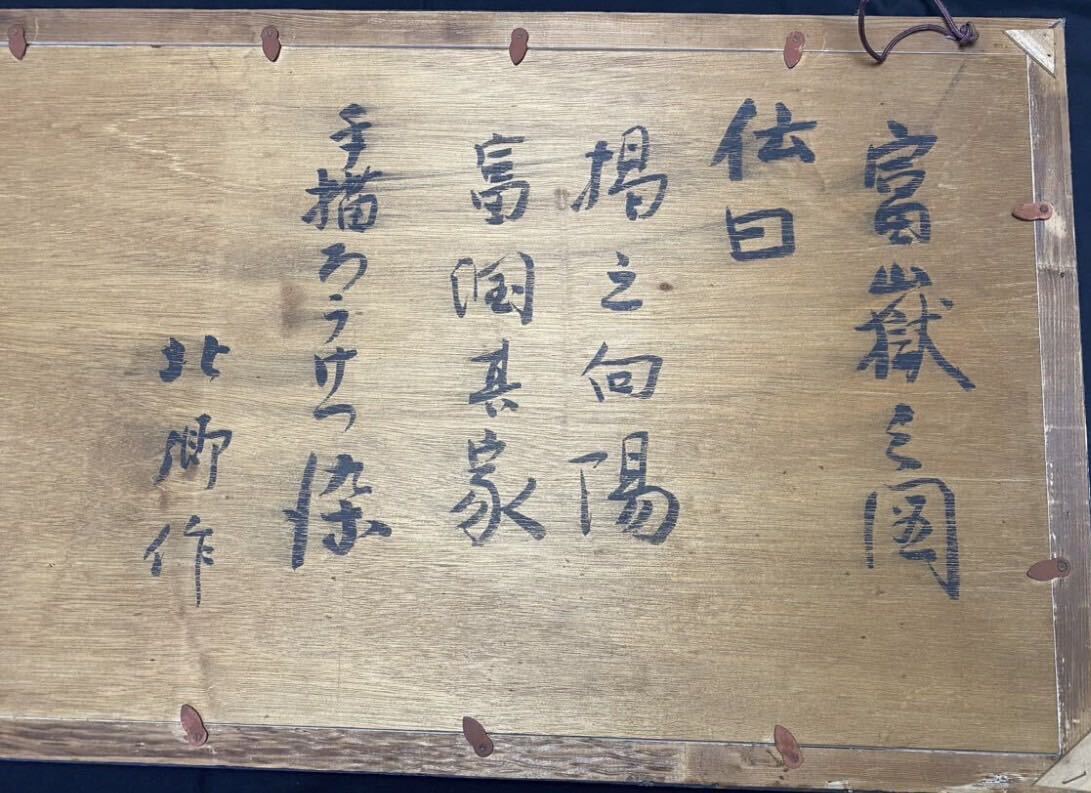 富嶽之図
伝曰
掲之向陽
富潤其家
手描ろうけつ染
北卿作